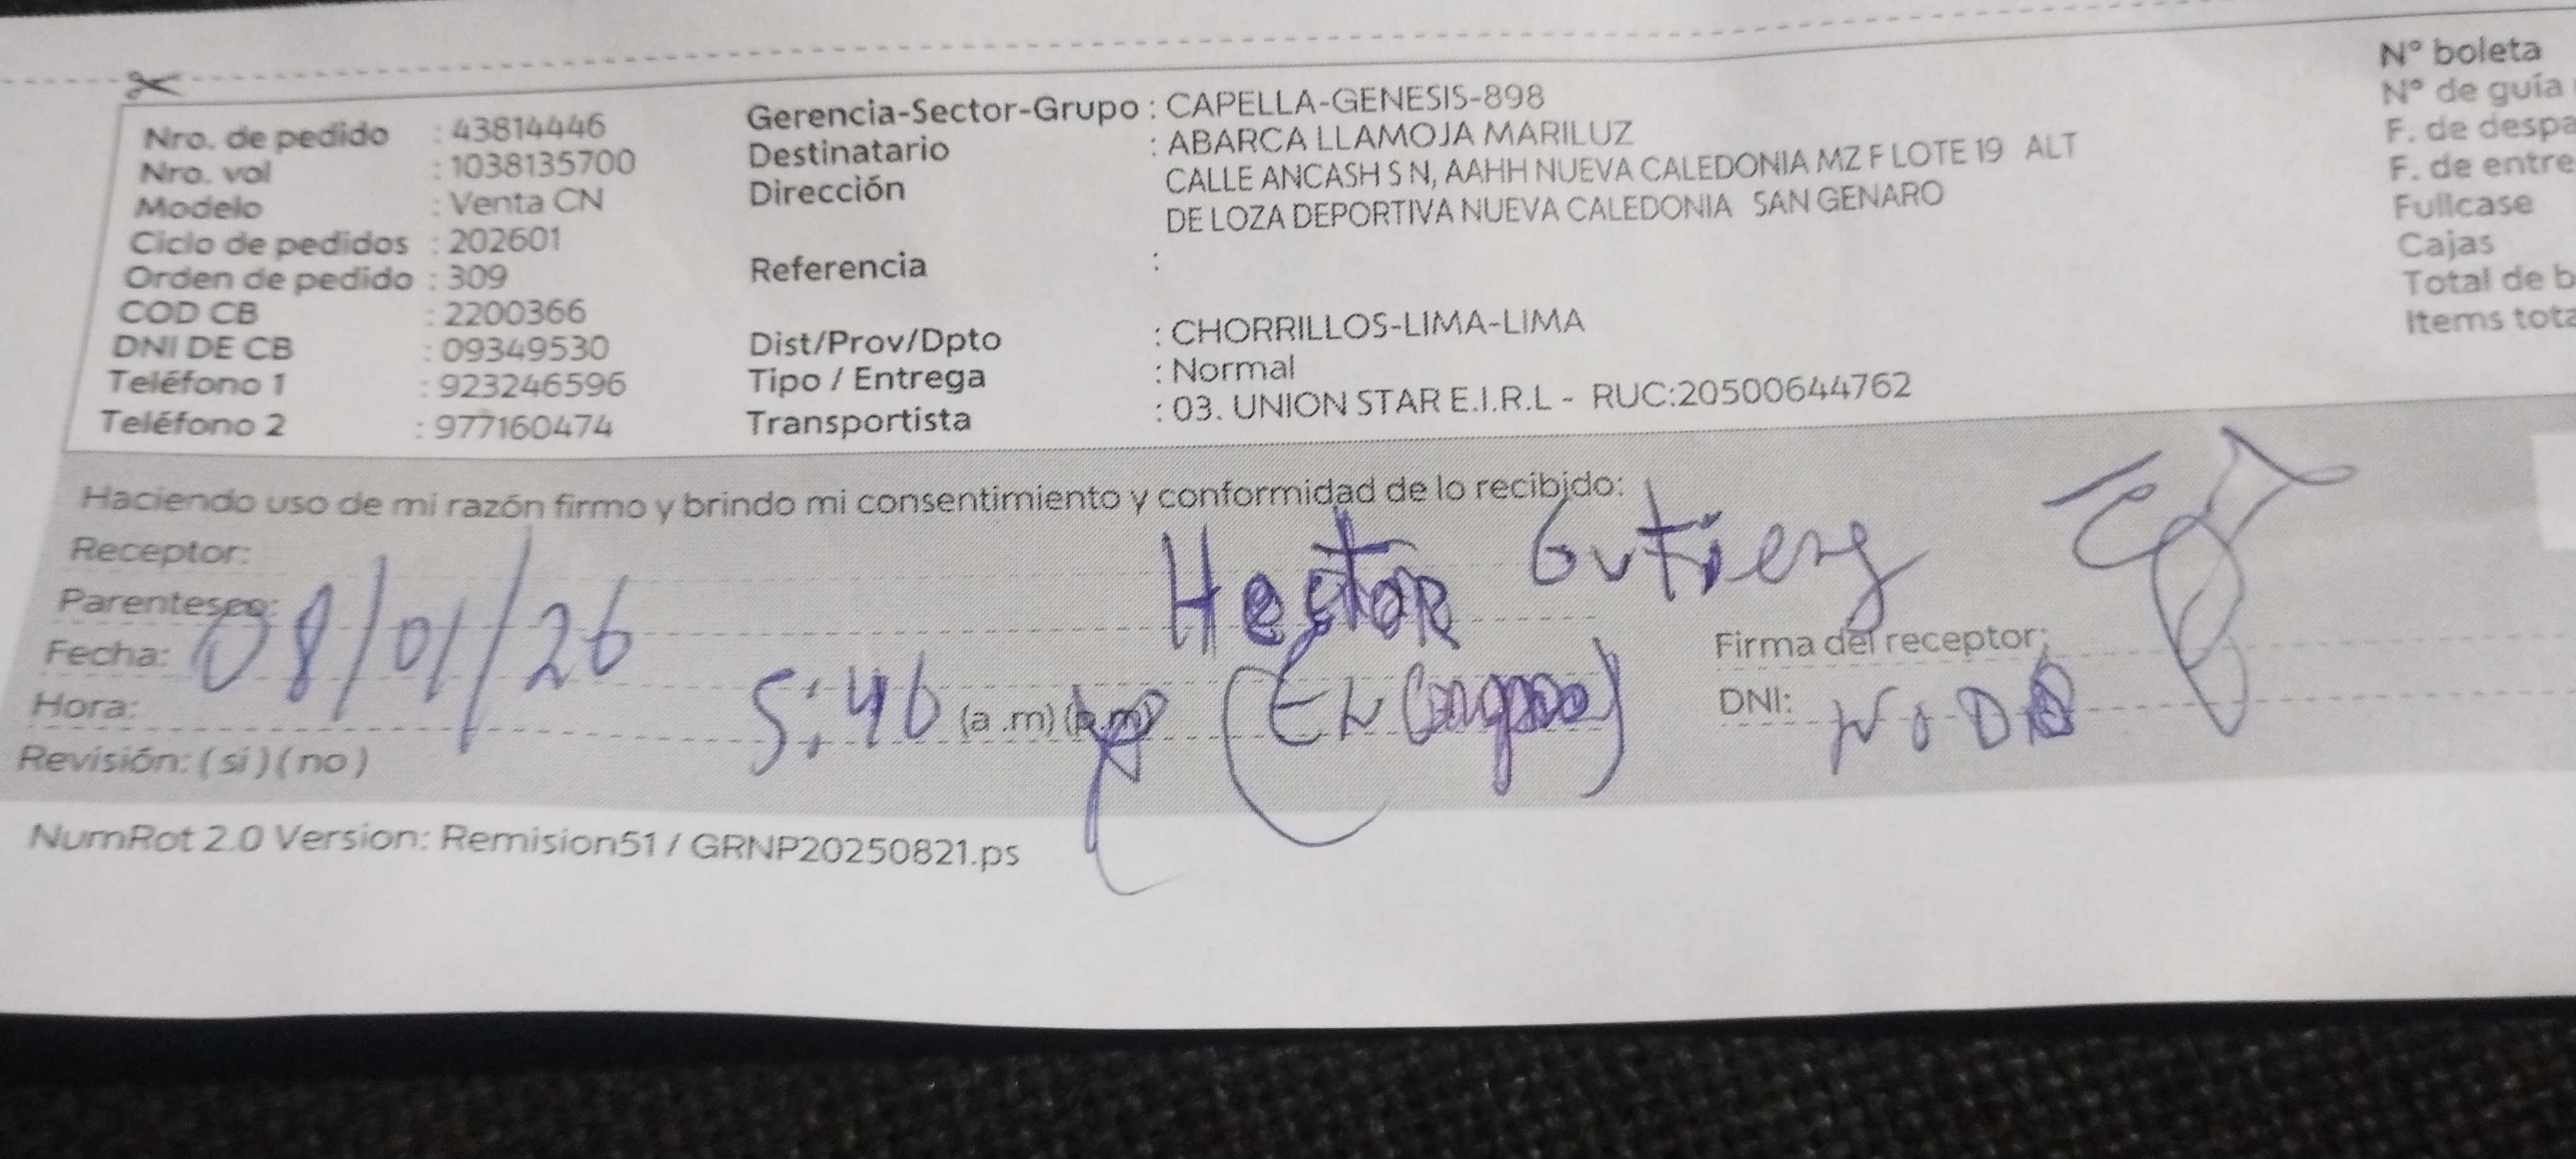 Nro. de pedido : 43814446
Nro. vol : 1038135700
Modelo : Venta CN
Ciclo de pedidos : 202601
Orden de pedido : 309
COD CB : 2200366
DNI DE CB : 09349530
Teléfono 1 : 923246596
Teléfono 2 : 977160474
Gerencia-Sector-Grupo : CAPELLA-GENESIS-898
Destinatario : ABARCA LLAMOJA MARILUZ
Dirección CALLE ANCASH S N, AAHH NUEVA CALEDONIA MZ F LOTE 19 ALT
DE LOZA DEPORTIVA NUEVA CALEDONIA SAN GENARO
Referencia :
Dist/Prov/Dpto : CHORRILLOS-LIMA-LIMA
Tipo / Entrega : Normal
Transportista : 03. UNION STAR E.I.R.L - RUC:20500644762
N° boleta
N° de guía
F. de despa
F. de entre
Fullcase
Cajas
Total de b
Items tota
Haciendo uso de mi razón firmo y brindo mi consentimiento y conformidad de lo recibido:
Receptor:
Hector
Parentesco:
Fecha: 08/01/26
Firma del receptor:
Hora: 5:46 (a .m) (p.m)
DNI:
Revisión: ( si ) ( no )
NumRot 2.0 Version: Remision51 / GRNP20250821.ps